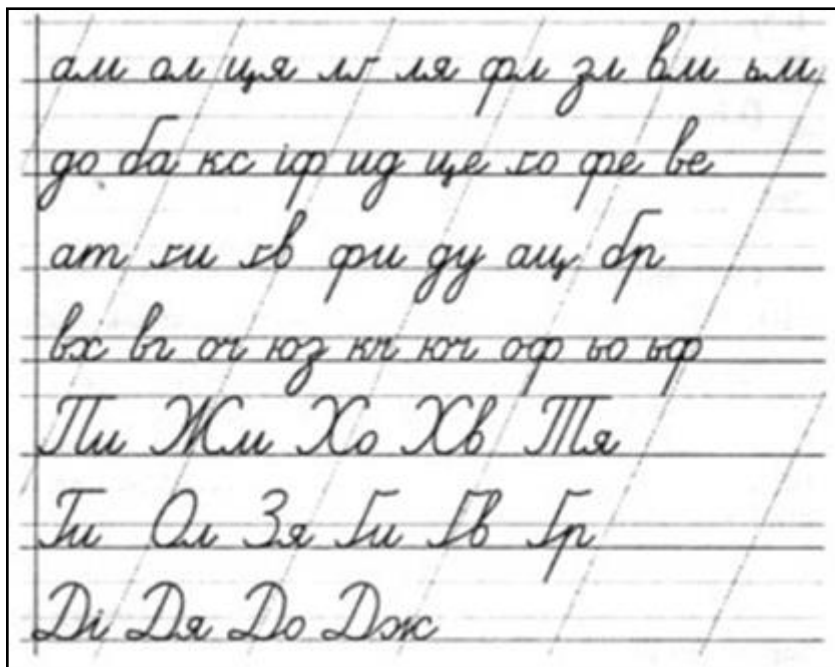 ам ал ця лґ ля фл зл вм ьм
до ба кс іф ид це ґо фе ве
ат ґи ґв фи ду ащ бр
вх вг оч юз кч юч оф ьо ьф
Пи Жм Хо Хв Тя
Ги Ол Зя Ґи Ґв Ґр
Ді Дя До Дж